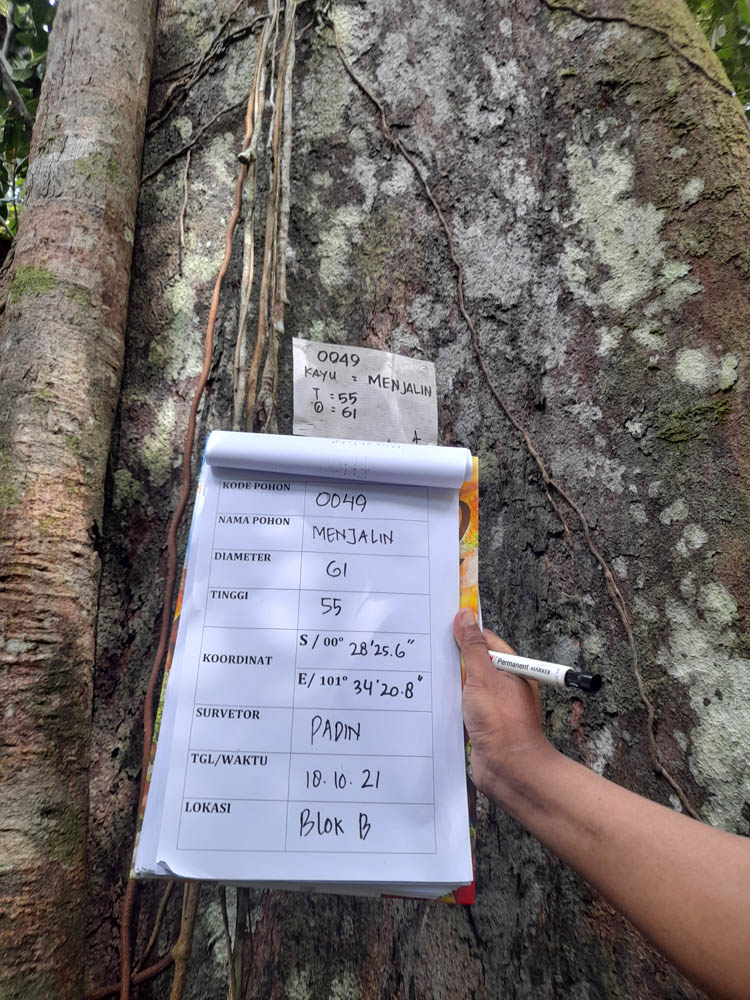 0049
KAYU = MENJALIN
T = 55
Ø = 61
KODE POHON 0049
NAMA POHON MENJALIN
DIAMETER 61
TINGGI 55
KOORDINAT S / 00° 28'25.6"
E/ 101° 34'20.8"
SURVETOR PADIN
TGL/WAKTU 10.10.21
LOKASI BloK B
Permanent MARKER